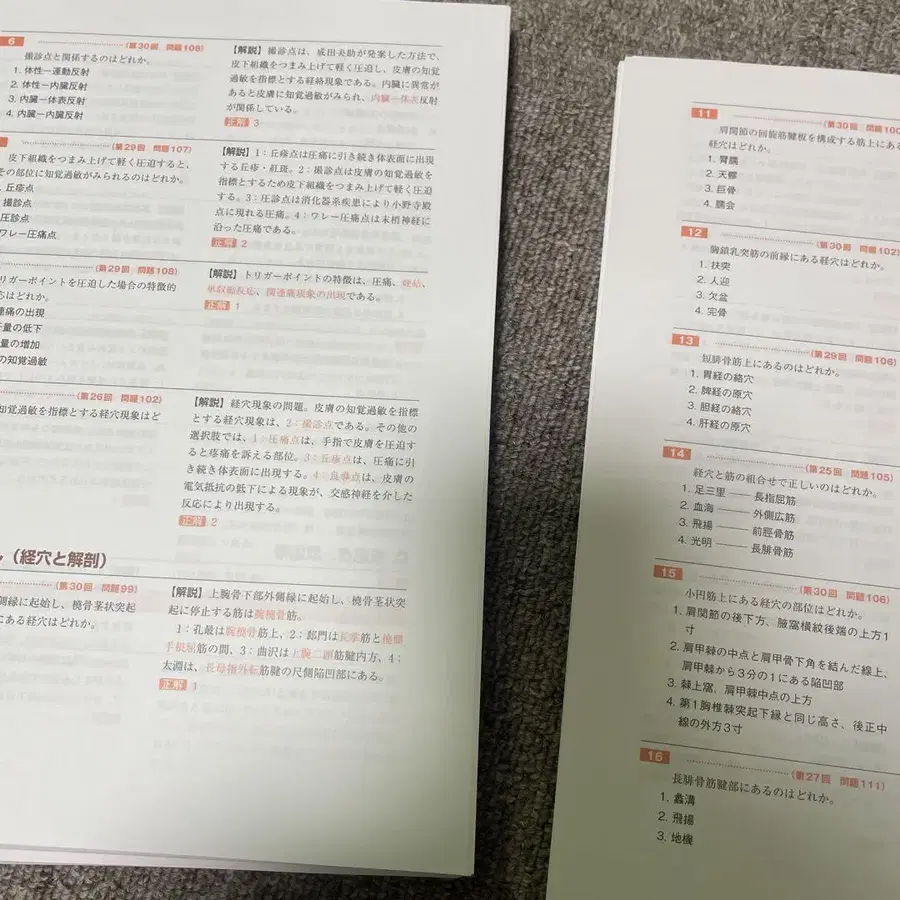 6 (第30回 問題108)
撮診点と関係するのはどれか。
1. 体性ー運動反射
2. 体性ー内臓反射
3. 内臓ー体表反射
4. 内臓ー内臓反射
【解説】撮診点は、成田夬助が発案した方法で、
皮下組織をつまみ上げて軽く圧迫し、皮膚の知覚
過敏を指標とする経絡現象である。内臓に異常が
あると皮膚に知覚過敏がみられ、内臓ー体表反射
が関係している。
正解 3
(第29回 問題107)
皮下組織をつまみ上げて軽く圧迫すると、
その部位に知覚過敏がみられるのはどれか。
丘疹点
撮診点
圧診点
ワレー圧痛点
【解説】1:丘疹点は圧痛に引き続き体表面に出現
する丘疹・紅斑。2:撮診点は皮膚の知覚過敏を
指標とするため皮下組織をつまみ上げて軽く圧迫
する。3:圧診点は消化器系疾患により小野寺殿
点に現れる圧痛。4:ワレー圧痛点は末梢神経に
沿った圧痛である。
正解 2
(第29回 問題108)
リガーポイントを圧迫した場合の特徴的
応はどれか。
連痛の出現
量の低下
量の増加
の知覚過敏
【解説】トリガーポイントの特徴は、圧痛、硬結、
単収縮反応、関連痛現象の出現である。
正解 1
(第26回 問題102)
知覚過敏を指標とする経穴現象はど
【解説】経穴現象の問題。皮膚の知覚過敏を指標
とする経穴現象は、2:撮診点である。その他の
選択肢では、1:圧痛点は、手指で皮膚を圧迫す
ると疼痛を訴える部位。3:丘疹点は、圧痛に引
き続き体表面に出現する。4:良導点は、皮膚の
電気抵抗の低下による現象が、交感神経を介した
反応により出現する。
正解 2
(経穴と解剖)
(第30回 問題99)
側縁に起始し、橈骨茎状突起
にある経穴はどれか。
【解説】上腕骨下部外側縁に起始し、橈骨茎状突
起に停止する筋は腕橈骨筋。
1:孔最は腕橈骨筋上、2:郄門は長掌筋と橈側
手根屈筋の間、3:曲沢は上腕二頭筋腱内方、4:
太淵は、長母指外転筋腱の尺側陥凹部にある。
正解 1
11 (第30回 問題100
肩関節の回旋筋腱板を構成する筋上にある
経穴はどれか。
1. 臂臑
2. 天髎
3. 巨骨
4. 臑会
12 (第30回 問題102)
胸鎖乳突筋の前縁にある経穴はどれか。
1. 扶突
2. 人迎
3. 欠盆
4. 完骨
13 (第29回 問題106)
短腓骨筋上にあるのはどれか。
1. 胃経の絡穴
2. 脾経の原穴
3. 胆経の絡穴
4. 肝経の原穴
14 (第25回 問題105)
経穴と筋の組合せで正しいのはどれか。
1. 足三里 ―― 長指屈筋
2. 血海 ―― 外側広筋
3. 飛揚 ―― 前脛骨筋
4. 光明 ―― 長腓骨筋
15 (第30回 問題106)
小円筋上にある経穴の部位はどれか。
1. 肩関節の後下方、腋窩横紋後端の上方1
寸
2. 肩甲棘の中点と肩甲骨下角を結んだ線上、
肩甲棘から3分の1にある陥凹部
3. 棘上窩、肩甲棘中点の上方
4. 第1胸椎棘突起下縁と同じ高さ、後正中
線の外方3寸
16 (第27回 問題111)
長腓骨筋腱部にあるのはどれか。
1. 蠡溝
2. 飛揚
3. 地機